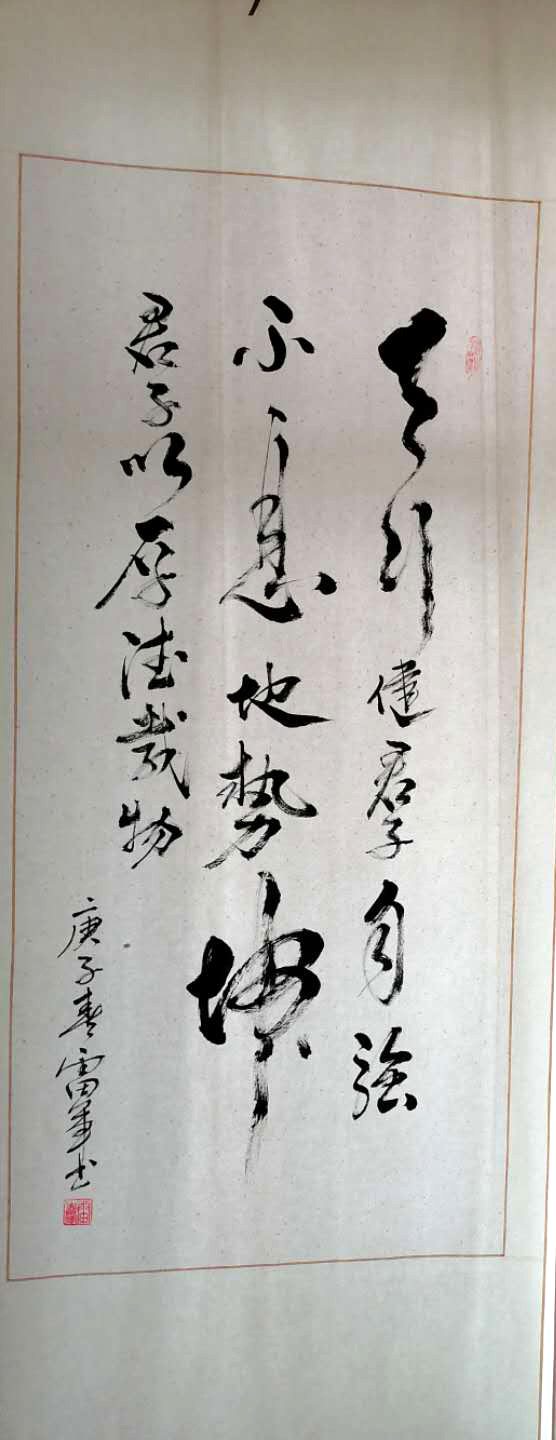 天行健君子自强
不息地势坤
君子以厚德载物
庚子春雷军书